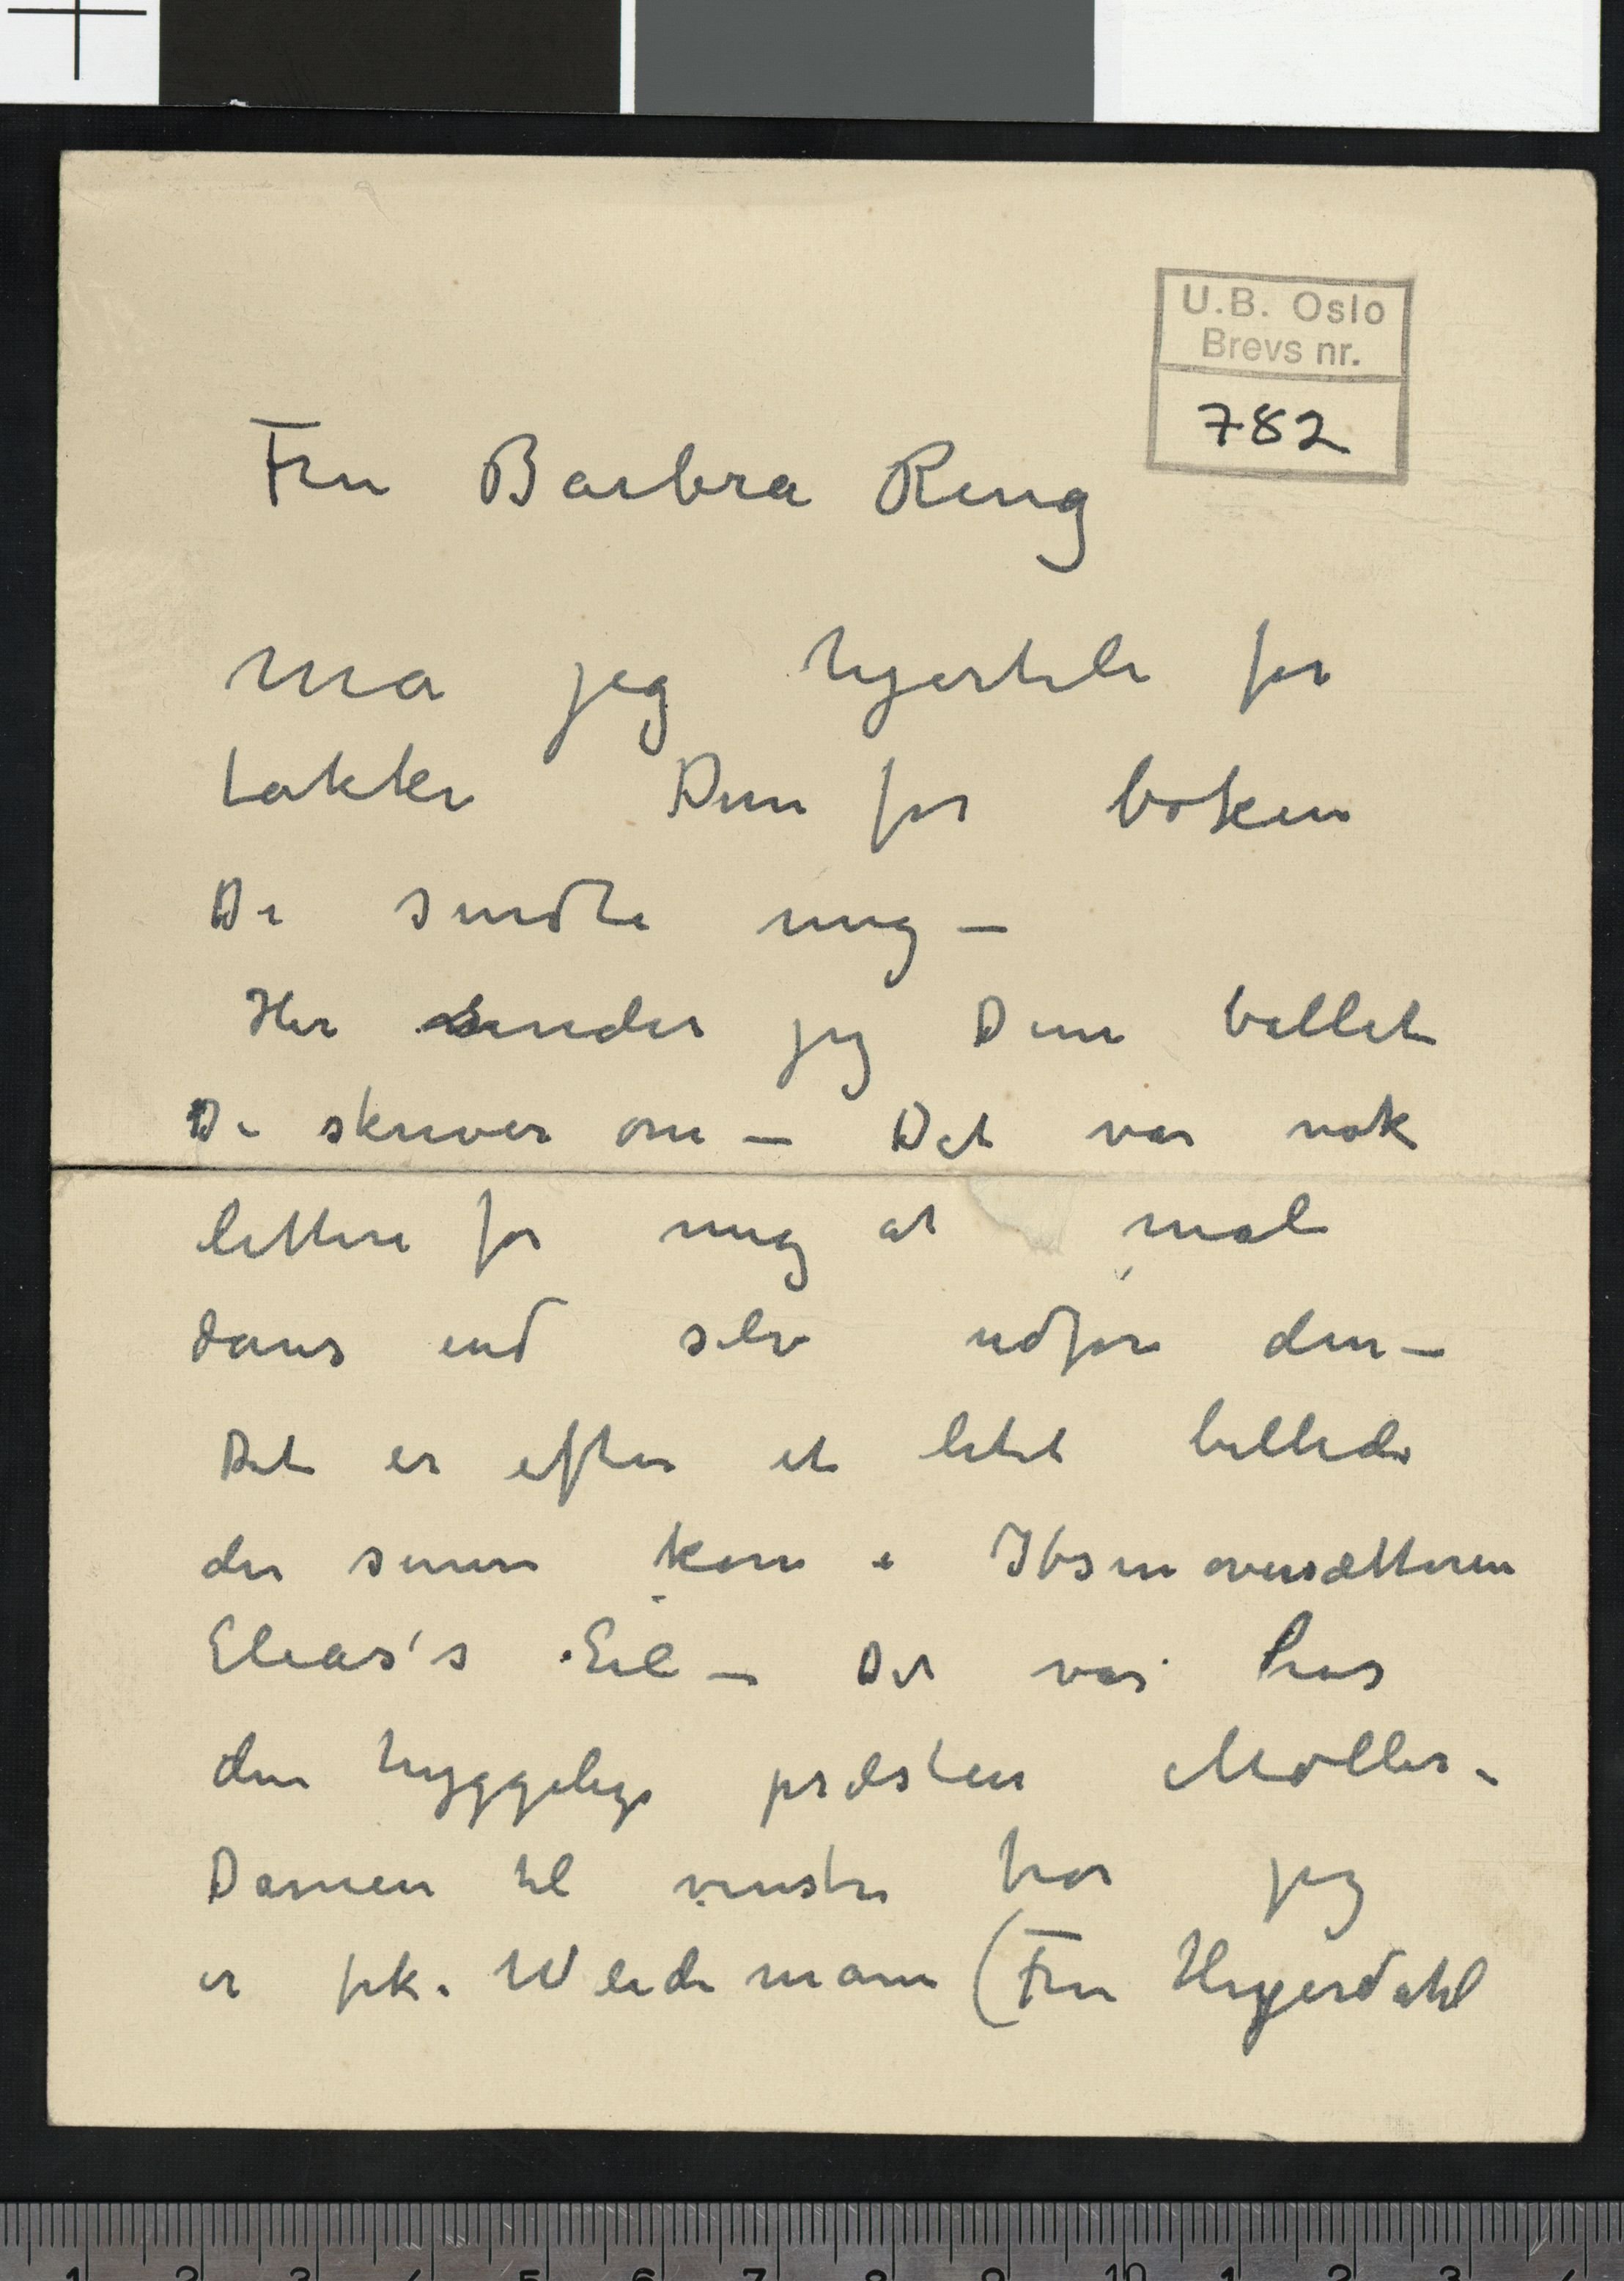 U.B. Oslo
Brevs nr.
782
Fru Barbra Ring
må jeg hjerteli for
takke Dem for boken
De sendte mig –
Her sender jeg Dem billet
De skriver om – Det var nok
lettere for mig at male
dans end selv udføre den –
Det er efter et litet billede
der senere kom i Ibsenoversætteren
Elias's Eie – Det var hos
den hyggelige præsten Møller –
Damen til venstre tror jeg
er frk. Weidemann (Fru Heyerdahl
1 2 3 4 5 6 7 8 9 10 1 2 3 4